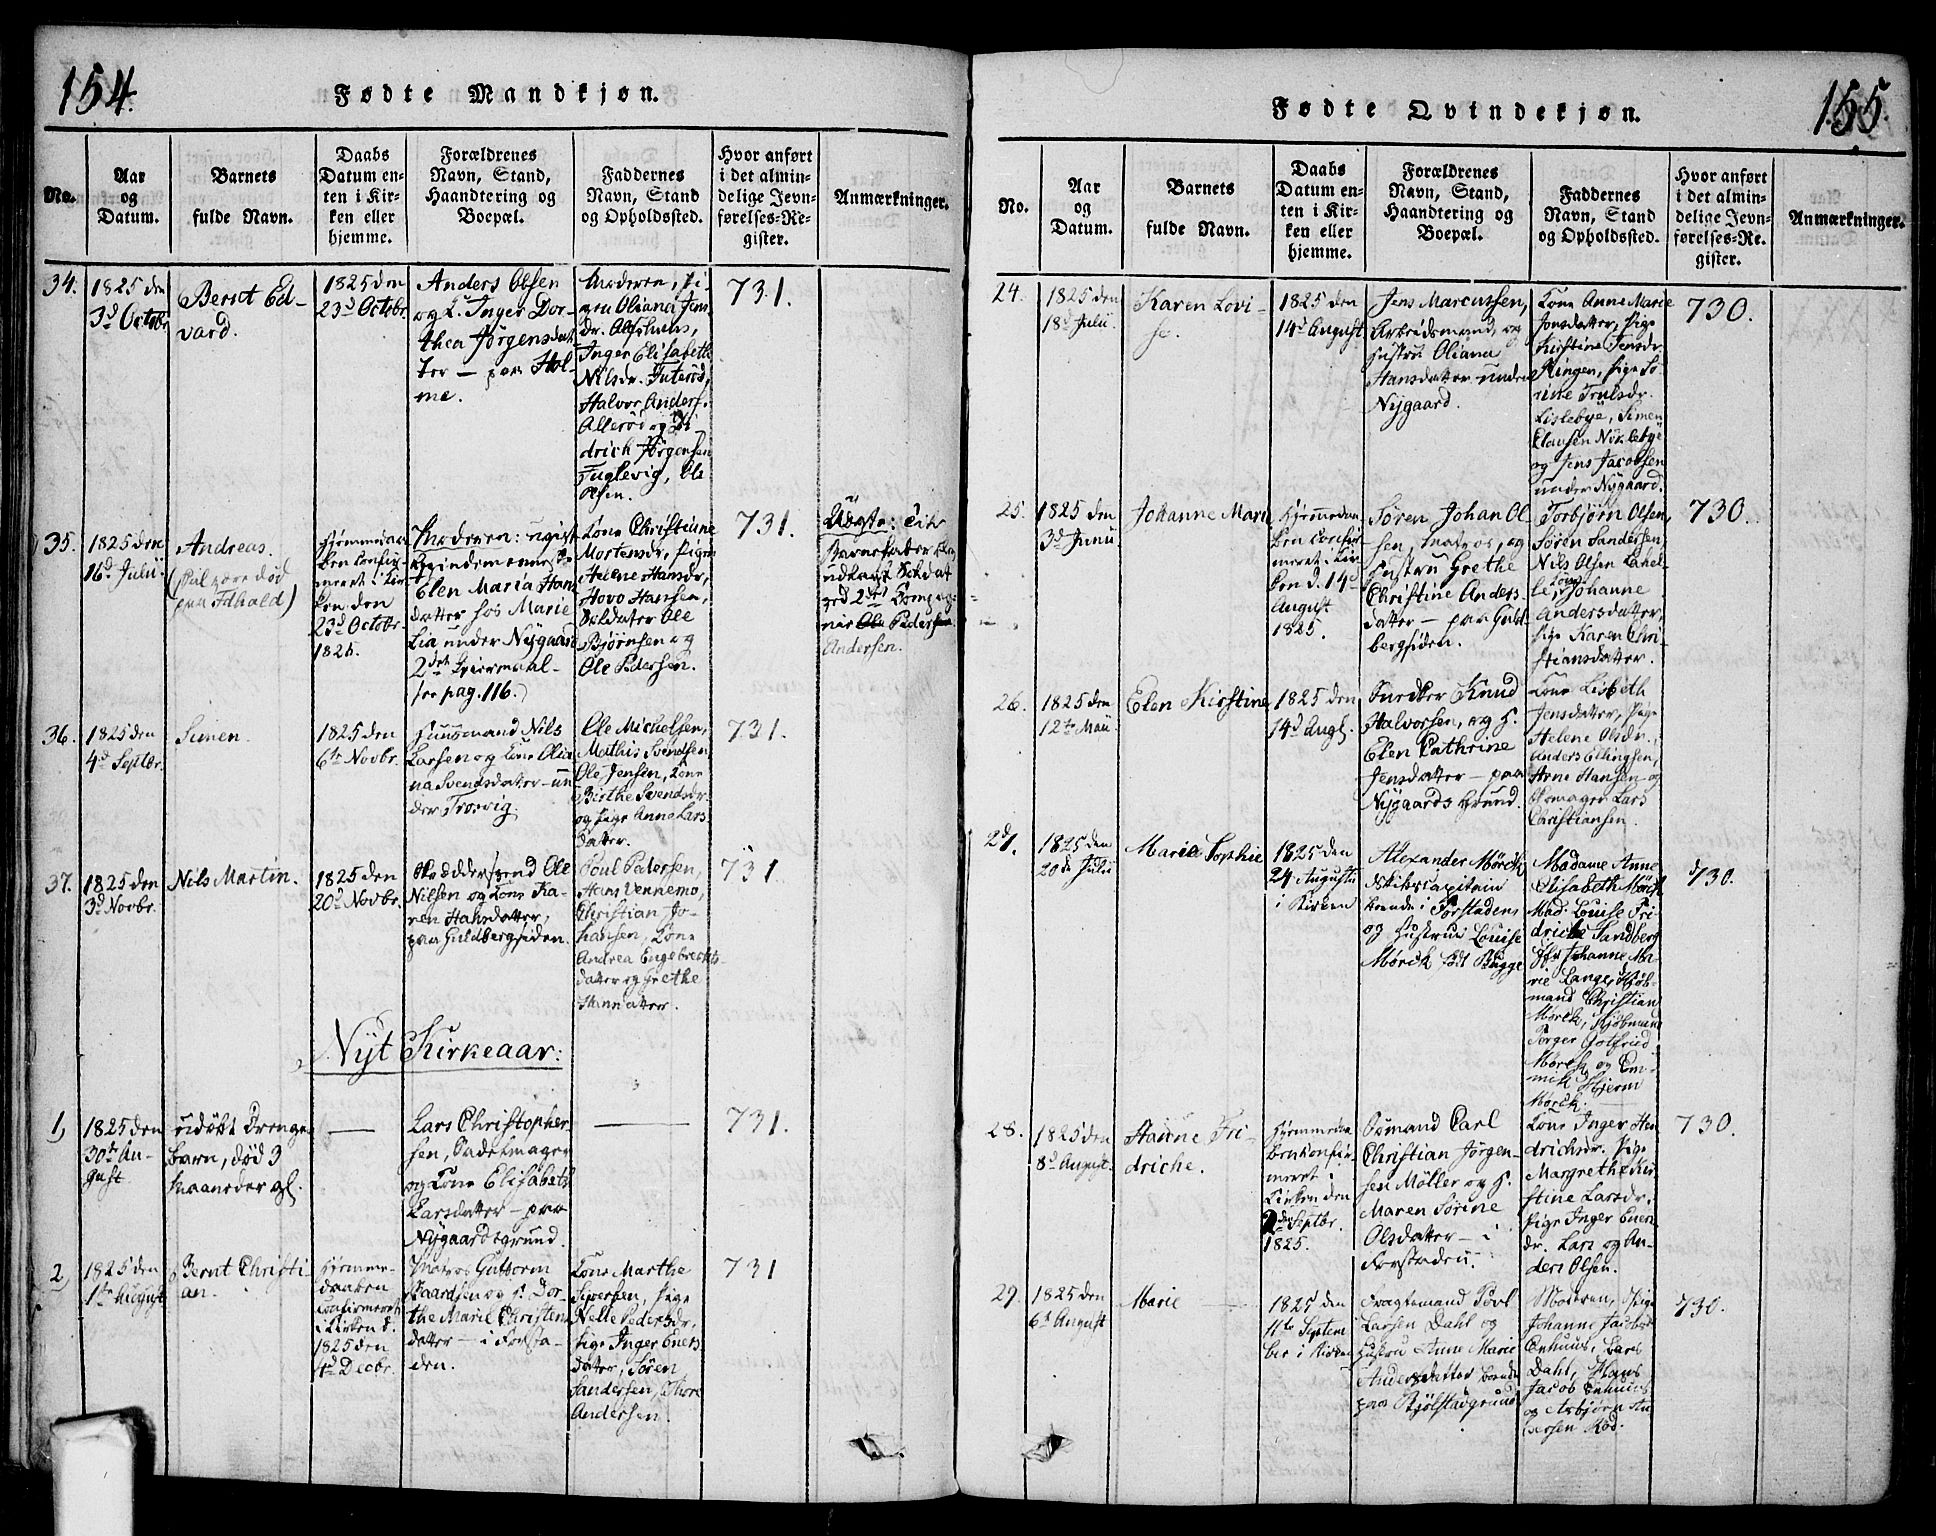 154.
Fødte Mandkjøn.
No.
Aar
og
Datum.
Barnets
fulde Navn.
Daabs
Datum en-
ten i Kir-
ken eller
hjemme.
Forældrenes
Navn, Stand,
Haandtering og
Boepæl.
Faddernes
Navn, Stand
og Opholdssted.
Hvor anført
i det almin-
delige Jevn-
førelses-Re-
gister.
Anmærkninger.
34.
1825 den
3d Octobr.
Bernt Ed-
vard.
1825 den
23d Octobr.
Anders Olsen
og K. Inger Dor-
thea Jørgensdat-
ter — paa Hol-
me.
Moderen, Pi-
gen Oliana Jens
dr.
Inger Elisabeth
Nilsdr.
Halvor Anders.
Allerød og Di
drich Jørgensen
Fuglevig, Ole
Olsen.
731.
35.
1825 den
16d Julii.
Andreas.
død
paa
Hjemmedaa-
ben Confir-
meret i Kir-
ken den
23d Octobr.
1825.
Moderen: ugift
Elen Maria Hans
datter hos Marie
Lia under Nygaard
2det Leiermaal
see pag. 116.)
Kone Christiane
Mortensdr, Pigen
Helene Hansdr,
Hovo Hansen,
Soldater Ole
Bjørnsen og
Ole Pedersen.
731.
Uægte: Til
Barnefader blev
udlagt Soldat
ved 2det Compag-
nie Ole Pedersen.
Andersen.
36.
1825 den
4d Septbr.
Simen.
1825 den
6te Novbr.
Huusmand Nils
Larsen og Kone Olia
na Svendsdatter — un
der Trosvig.
Ole Michelsen,
Mathis Svendsen
Ole Jensen, Kone
Birthe Svendsdr.
og Pige Anne Lars
datter.
731.
37.
1825 den
3d Novbr.
Nils Martin.
1825 den
20d Novbr.
Skræddersvend Ole
Nilsen og Kone Ka-
ren Hansdatter,
paa Guldbergsiden.
Poul Pedersen,
Hans Vennemo,
Christian Jo-
hansen, Kone
Andrea Engebrechts
datter og Grethe
731
Nyt Kirkeaar:
1,
1825 den
30te Au-
gust.
udøbt Drenge
barn, død 3
Maaneder gl.
—
Lars Christopher
sen, Sadelmager
og Kone Elisabeth
Larsdatter — paa
Nygaardsgrund.
—
731.
2,
1825 den
1te August
Bernt Christi
an.
Hjemme-
daaben
Confirmeret
i Kirken d.
1825 den
4d Decbr.
Matros Guttorm
Baardsen og H. Dor-
the Marie Christens
datter — i Forsta-
den.
Kone Marthe
Siversen, Pige
Nelle Pedersdr,
Pige Inger Evers
datter, Søren
Sandersen, Thore
Andersen.
731
155.
Fødte Qvindekjøn.
No.
Aar
og
Datum.
Barnets
fulde Navn.
Daabs
Datum en-
ten i Kir-
ken eller
hjemme.
Forældrenes
Navn, Stand,
Haandtering og
Boepæl.
Faddernes
Navn, Stand
og Opholdssted.
Hvor anført
i det almin-
delige Jevn-
førelses-Re-
gister.
Anmærkninger.
24.
1825 den
18d Julii
Karen Lovi-
se.
1825 den
14d August
Jens Marcussen,
Arbeidsmand, og
Hustru Oliana
Hansdatter under
Nygaard.
Kone Anne Marie
Jonsdatter, Pige
Kirstine Jensdr.
Ringen, Pige Sø-
rine Trulsdr.
Lislebye, Simen
Clausen Niklebye
og Jens Jacobsen
under Nygaard.
730.
25.
1825 den
3d Junii
Johanne Marie
Hjemmedaa
ben confir-
meret i Kir-
ken d. 14d
August
1825.
Søren Johan Ol
sen, Matros, og
Hustru Grethe
Christine Anders-
datter — paa Guld-
bergsiden.
Torbjørn Olsen,
Søren Sandersen,
Nils Olsen Label-
le, Kone Johanne
Andersdatter,
Pige Karen Chri-
stiansdatter.
730.
26.
1825 den
12te Maii
Elen Kirstine
1825 den
14d Aug.
Snedker Knud
Halvorsen, og H.
Elen Cathrine
Jensdatter — paa
Nygaards Grund.
Kone Lisbeth
Jensdatter, Pige
Helene Olsdr.,
Anders Ellingsen,
Arne Hansen og
Lars
Christiansen.
27.
1825 den
20de Julii
Marie Sophie
1825 den
24 Augusti
i Kirken
Alexander Mørch
Skibscapitain
boende i Forstaden
og Hustrue Louise
Mørch født Bugge
Madame Anne
Elisabeth Mørch
Mad. Louise Fri-
driche Sandberg
Jfr Johanne Ma-
rie Lange, Kjøb-
mand Christian
Mørch, Kjøbmand
Jørger Gotfried
Mørch og Em-
mik Hjerm
Mørch.
730.
28.
1825 den
8d August.
Hanne Fri-
driche.
Hjemmedaa
ben Confir-
meret i
Kirken den
2den Septbr.
1825.
Carl
Christian Jørgen-
sen Møller og H.
Maren Sørine
Olsdatter — i
Forstaden.
Kone Inger Hen
drichsdr. Pige
Margrethe Kir-
stine Larsdr,
Pige Inger Even
dr. Lars og An-
ders Olsen.
730.
29.
1825 den
6d August
Marie
1825 den
11te Septem
ber i Kirken
Fragtemand Povl
Larsen Dahl og
Hustru Anne Marie
Andersdatter boende
paa Bjølstadgrund
Modren, Pige
Johanne Jacobsd
Enhuus, Lars
Dahl, Hans
Jacob Enhuus
og Asbjørn An
dersen Rød.
730.